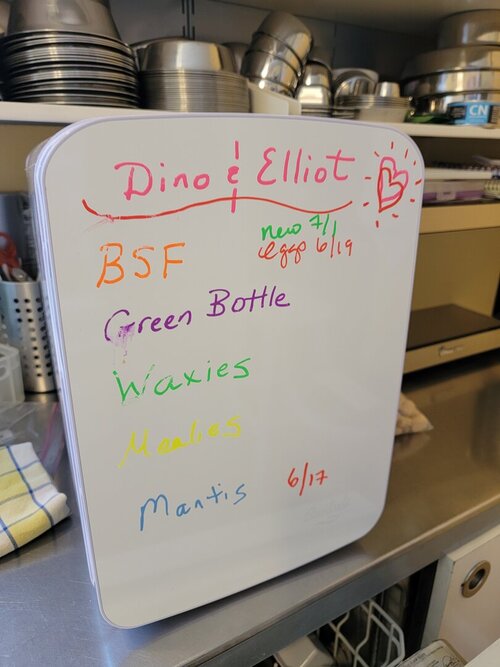 Dino & Elliot
new 7/1
BSF eggs 6/19
Green Bottle
Waxies
Mealies
Mantis 6/17
CN